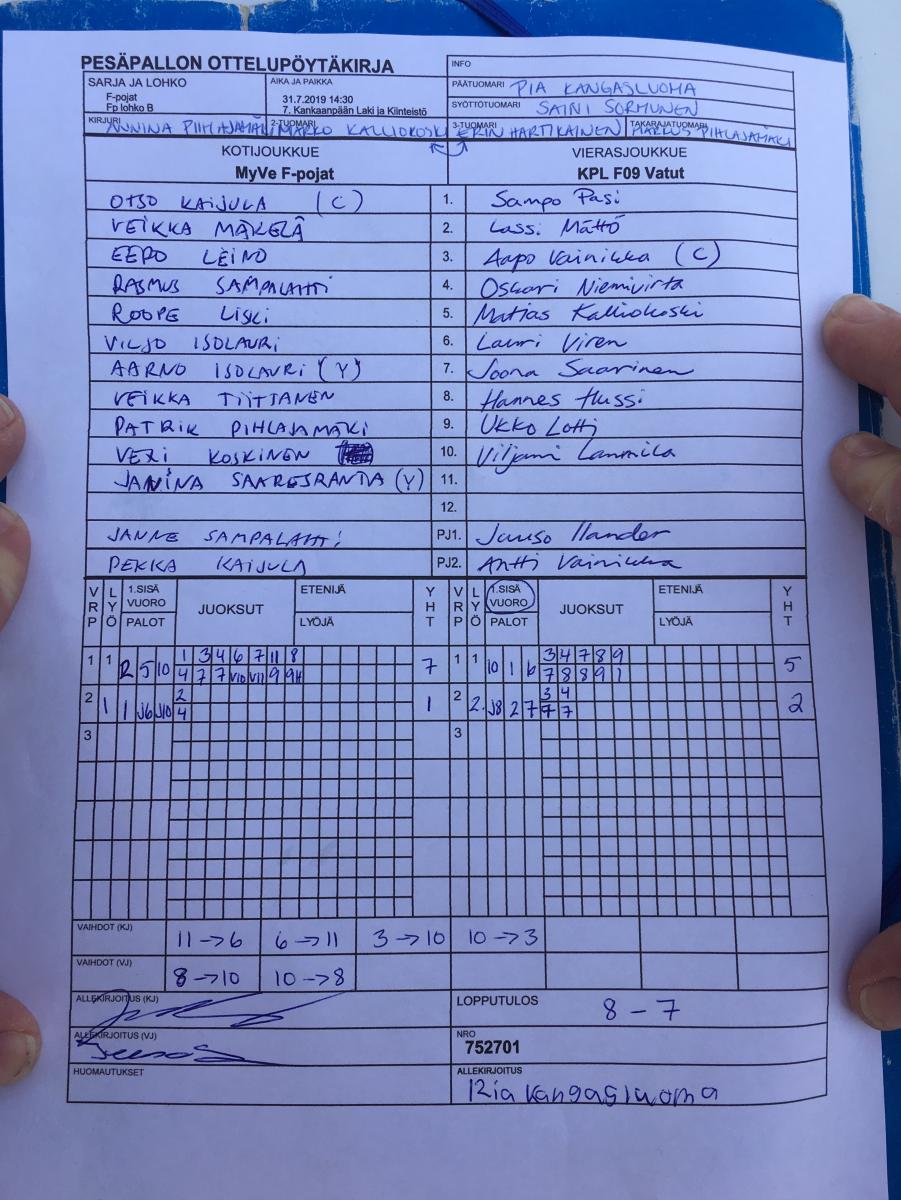 PESÄPALLON OTTELUPÖYTÄKIRJA
INFO
SARJA JA LOHKO
F-pojat
Fp lohko B
AIKA JA PAIKKA
31.7.2019 14:30
7. Kankaanpään Laki ja Kiinteistö
PÄÄTUOMARI PIA KANGASLUOMA
SYÖTTÖTUOMARI SAINI SORMUNEN
KIRJURI ANNINA PIHLAJAMÄKI 2-TUOMARI MARKO KALLIOKOSKI 3-TUOMARI ERIN HARTIKAINEN TAKARAJATUOMARI MARKUS PIHLAJAMÄKI
KOTIJOUKKUE VIERASJOUKKUE
MyVe F-pojat KPL F09 Vatut
OTSO KAIJULA (C) 1. Sampo Pasi
VEIKKA MÄKELÄ 2. Lassi Mättö
EERO LEINO 3. Aapo Vainikka (C)
RASMUS SAMPALAHTI 4. Oskari Niemivirta
ROOPE LISKI 5. Matias Kalliokoski
VILJO ISOLAURI 6. Lauri Viren
AARNO ISOLAURI (Y) 7. Joona Saarinen
VEIKKA TIITTANEN 8. Hannes Hussi
PATRIK PIHLAJAMÄKI 9. Ukko Lotti
VEXI KOSKINEN 10. Viljami Lammila
JANINA SAARESRANTA (Y) 11.
12.
JANNE SAMPALAHTI PJ1. Juuso Ilander
PEKKA KAIJULA PJ2. Antti Vainikka
VRP LYÖ 1.SISÄ VUORO PALOT JUOKSUT ETENIJÄ LYÖJÄ YHT VRP LYÖ 1.SISÄ VUORO PALOT JUOKSUT ETENIJÄ LYÖJÄ YHT
1 3 4 6 7 11 8 3 4 7 8 9
1 1 2 5 10 4 7 7 V10 V11 9 9H 7 1 1 10 1 6 7 8 8 9 1 5
2 3 4
2 1 1 J6 J10 4 1 2 2. J8 2 7 7 7 2
3 3
VAIHDOT (KJ) 11->6 6->11 3->10 10->3
VAIHDOT (VJ) 8->10 10->8
ALLEKIRJOITUS (KJ) LOPPUTULOS 8 - 7
ALLEKIRJOITUS (VJ) NRO
752701
HUOMAUTUKSET ALLEKIRJOITUS
Pia Kangasluoma